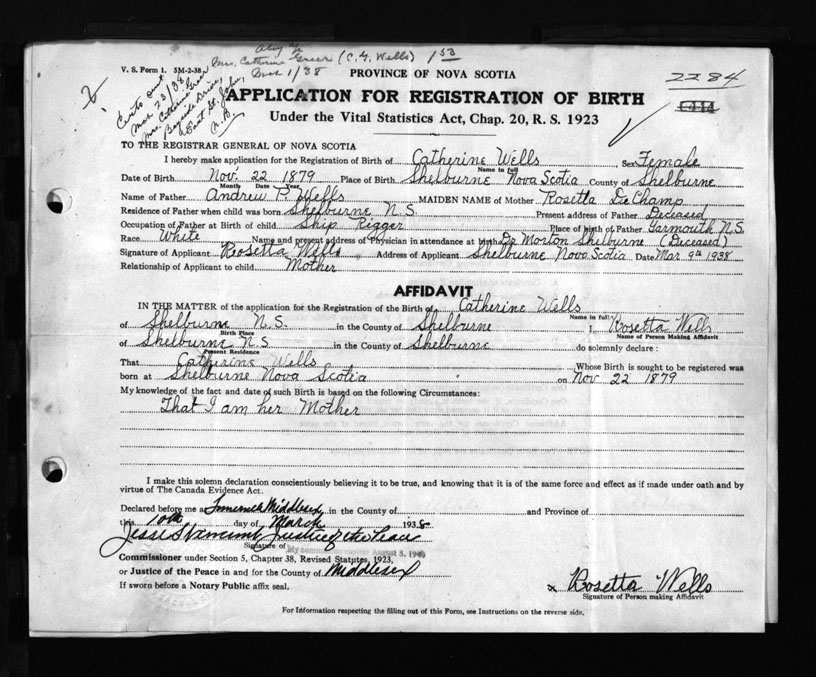 Mrs. Catherine Greer (C. G. Wells) 1 50
V. S. Form 1. 5M-2-38
Mar 1/38
PROVINCE OF NOVA SCOTIA
2284
Certs out
Mar 23/38
Mrs. Catherine Greer
Bayside Drive,
East St. John,
N.B.
APPLICATION FOR REGISTRATION OF BIRTH
Under the Vital Statistics Act, Chap. 20, R. S. 1923
TO THE REGISTRAR GENERAL OF NOVA SCOTIA
I hereby make application for the Registration of Birth of Catherine Wells Sex Female
Name in full
Date of Birth Nov. 22 1879 Place of Birth Shelburne Nova Scotia County of Shelburne
Month Date Year
Name of Father Andrew P. Wells MAIDEN NAME of Mother Rosetta DeChamp
Residence of Father when child was born Shelburne N.S. Present address of Father Deceased
Occupation of Father at Birth of child Ship Rigger Place of birth of Father Yarmouth N.S.
Race White Name and present address of Physician in attendance at birth Dr Morton Shelburne (Deceased)
Signature of Applicant Rosetta Wells Address of Applicant Shelburne Nova Scotia Date Mar 9th 1938
Relationship of Applicant to child Mother
AFFIDAVIT
IN THE MATTER of the application for the Registration of the Birth of Catherine Wells
Name in full
of Shelburne N.S. in the County of Shelburne I, Rosetta Wells
Birth Place Name of Person Making Affidavit
of Shelburne N.S in the County of Shelburne do solemnly declare:
Present Residence
That Catherine Wells Whose Birth is sought to be registered was
born at Shelburne Nova Scotia on Nov 22 1879
My knowledge of the fact and date of such Birth is based on the following Circumstances:
That I am her Mother
I make this solemn declaration conscientiously believing it to be true, and knowing that it is of the same force and effect as if made under oath and by
virtue of The Canada Evidence Act.
Declared before me at Middlesex in the County of and Province of
this 10th day of March 1938
Justice of the Peace
Signature of My commission expires August 5, 1940
Commissioner under Section 5, Chapter 38, Revised Statutes, 1923,
or Justice of the Peace in and for the County of Middlesex
If sworn before a Notary Public affix seal.
x Rosetta Wells
Signature of Person making Affidavit
For Information respecting the filling out of this Form, see Instructions on the reverse side.